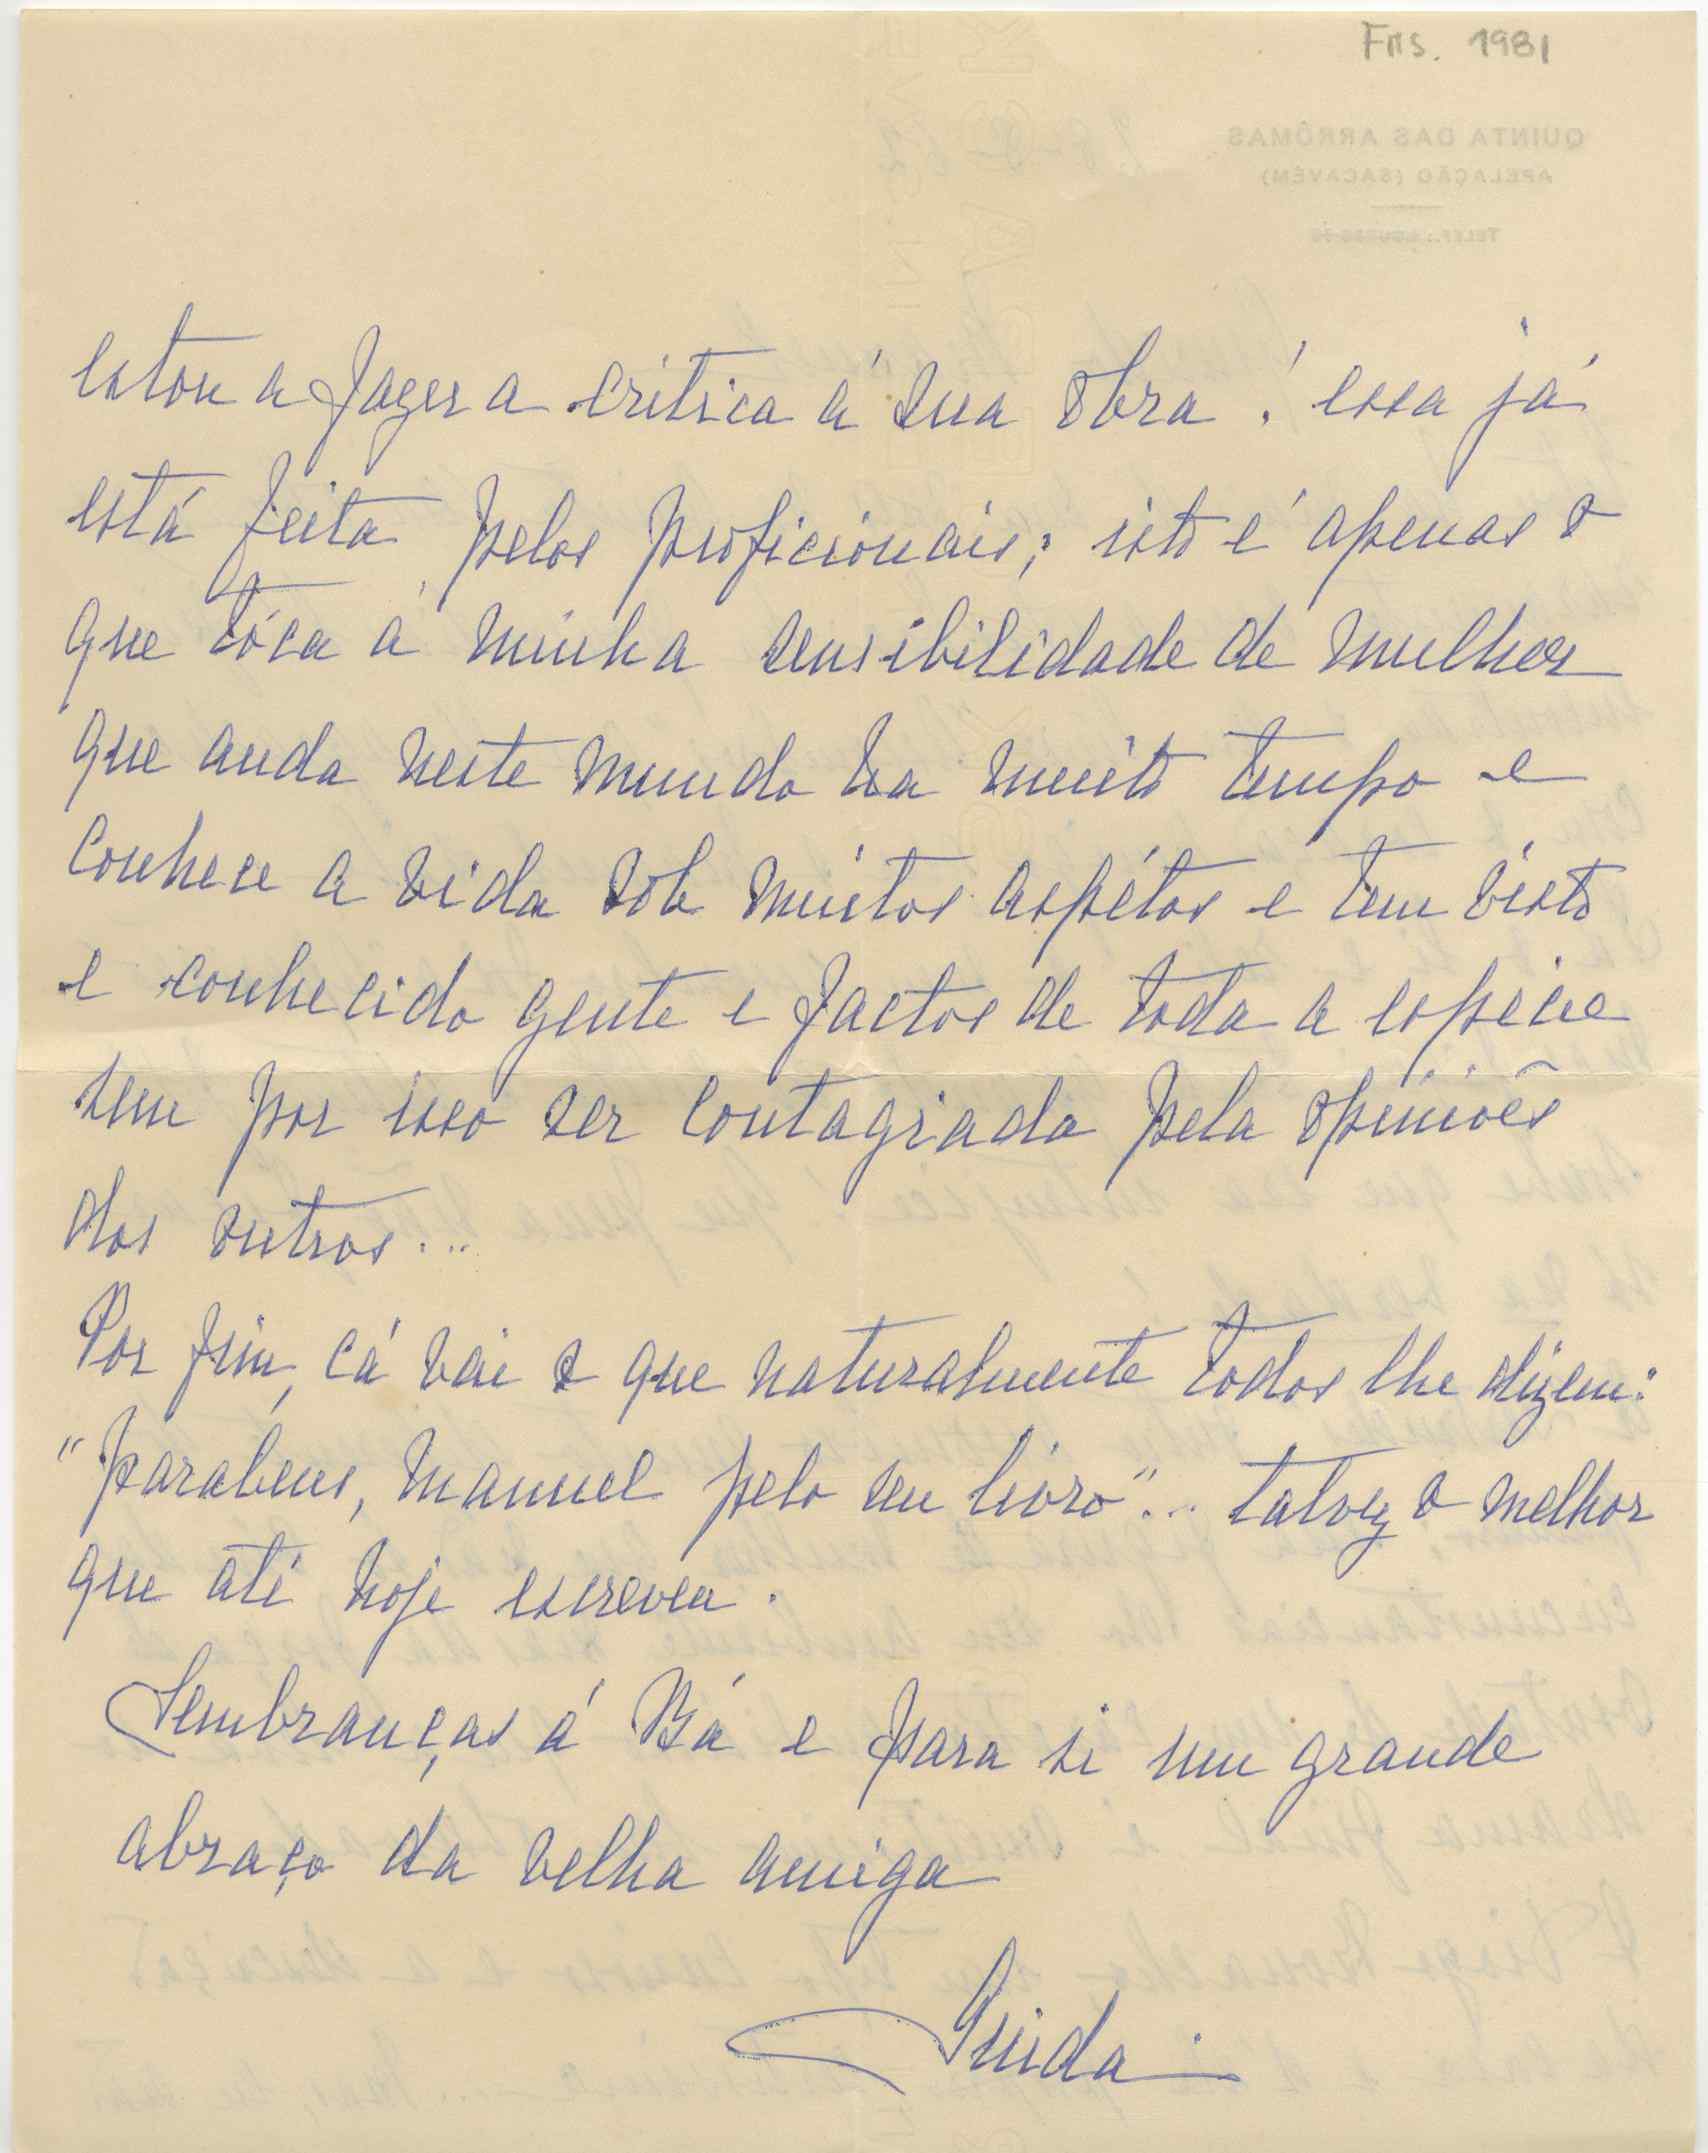 Fns. 1981
QUINTA DAS ARRÔMAS
APELAÇÃO (SACAVÉM)
TELEF.:
28-9-62
estou a fazer a critica á sua obra! essa já
está feita pelos proficionais; isto é apenas o
que tóca á minha sensibilidade de mulher
que anda neste mundo ha muito tempo e
conhece a vida sob muitos aspétos e tem visto
e conhecido gente e factos de toda a especie
sem por isso ser contagiada pela opiniões
dos outros...
Por fim, cá vai o que naturalmente todos lhe dizem:
"parabens, Manuel pelo seu livro"... talvez o melhor
que até hoje escreveu.
Lembranças á Bá e para si um grande
abraço da velha amiga
Guida